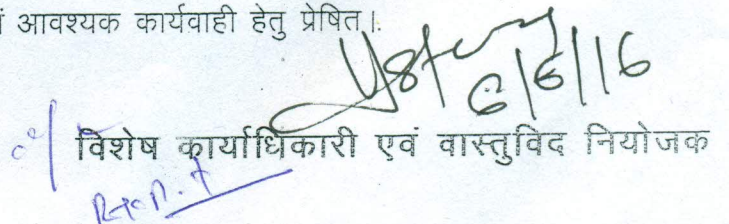 आवश्यक कार्यवाही हेतु प्रेषित।
6/6/16
विशेष कार्याधिकारी एवं वास्तुविद नियोजक